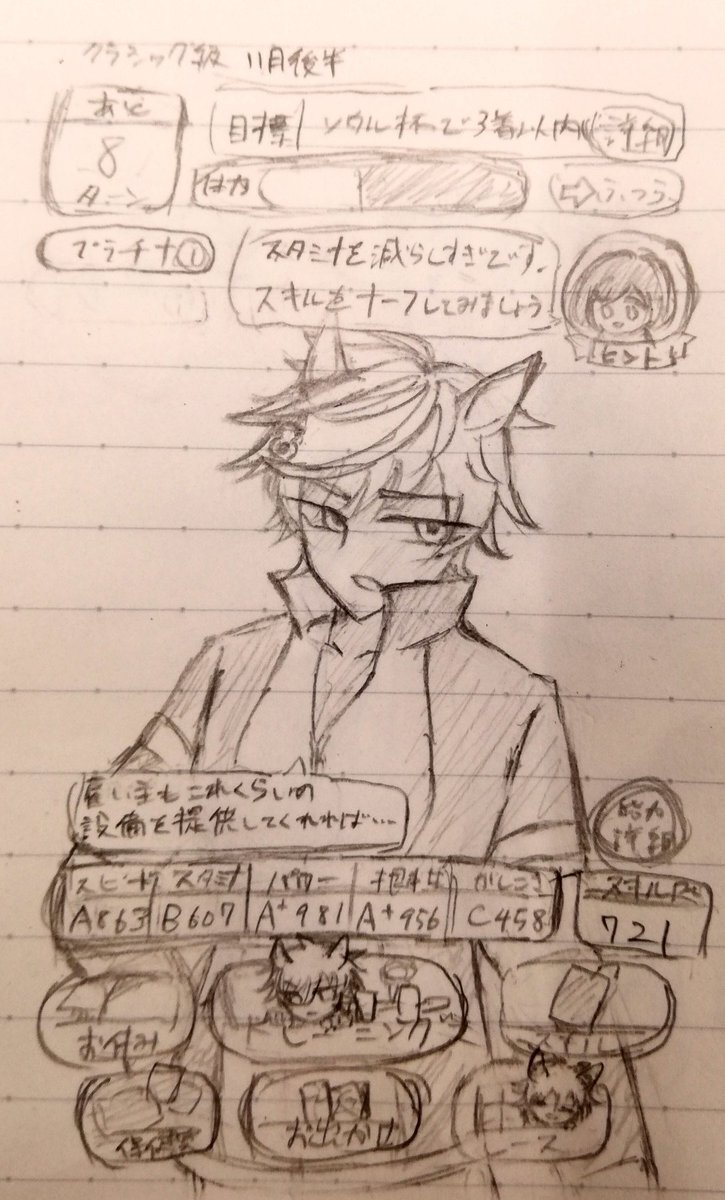 クラシック級 11月後半
あと
8
ターン
目標 ソウル杯で3着以内 詳細
体力
ふつう
プラチナ①
スタミナを減らしすぎです。
スキルをナーフしてみましょう
ヒント
雇い主もこれくらいの
設備を提供してくれれば…
能力
詳細
スピード スタミナ パワー 根性 かしこさ スキルPt
A863 B607 A+981 A+956 C458 721
お休み トレーニング スキル
保健室 お出かけ レース